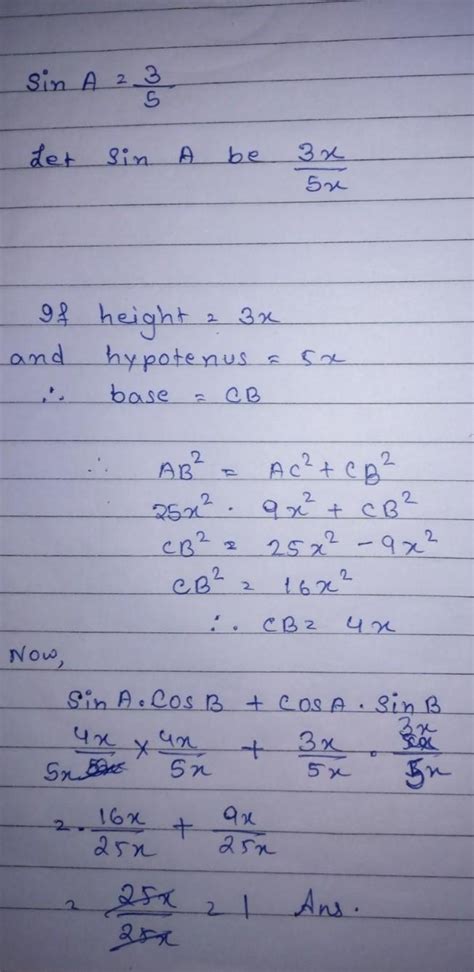 sin A = 3/5
Let sin A be 3x/5x
If height = 3x
and hypotenus = 5x
∴ base = CB
∴ AB² = AC² + CB²
25x² = 9x² + CB²
CB² = 25x² - 9x²
CB² = 16x²
∴ CB = 4x
Now,
sin A . Cos B + cos A . sin B
4x/5x × 4x/5x + 3x/5x . 3x/5x
= 16x/25x + 9x/25x
= 25x/25x = 1 Ans.